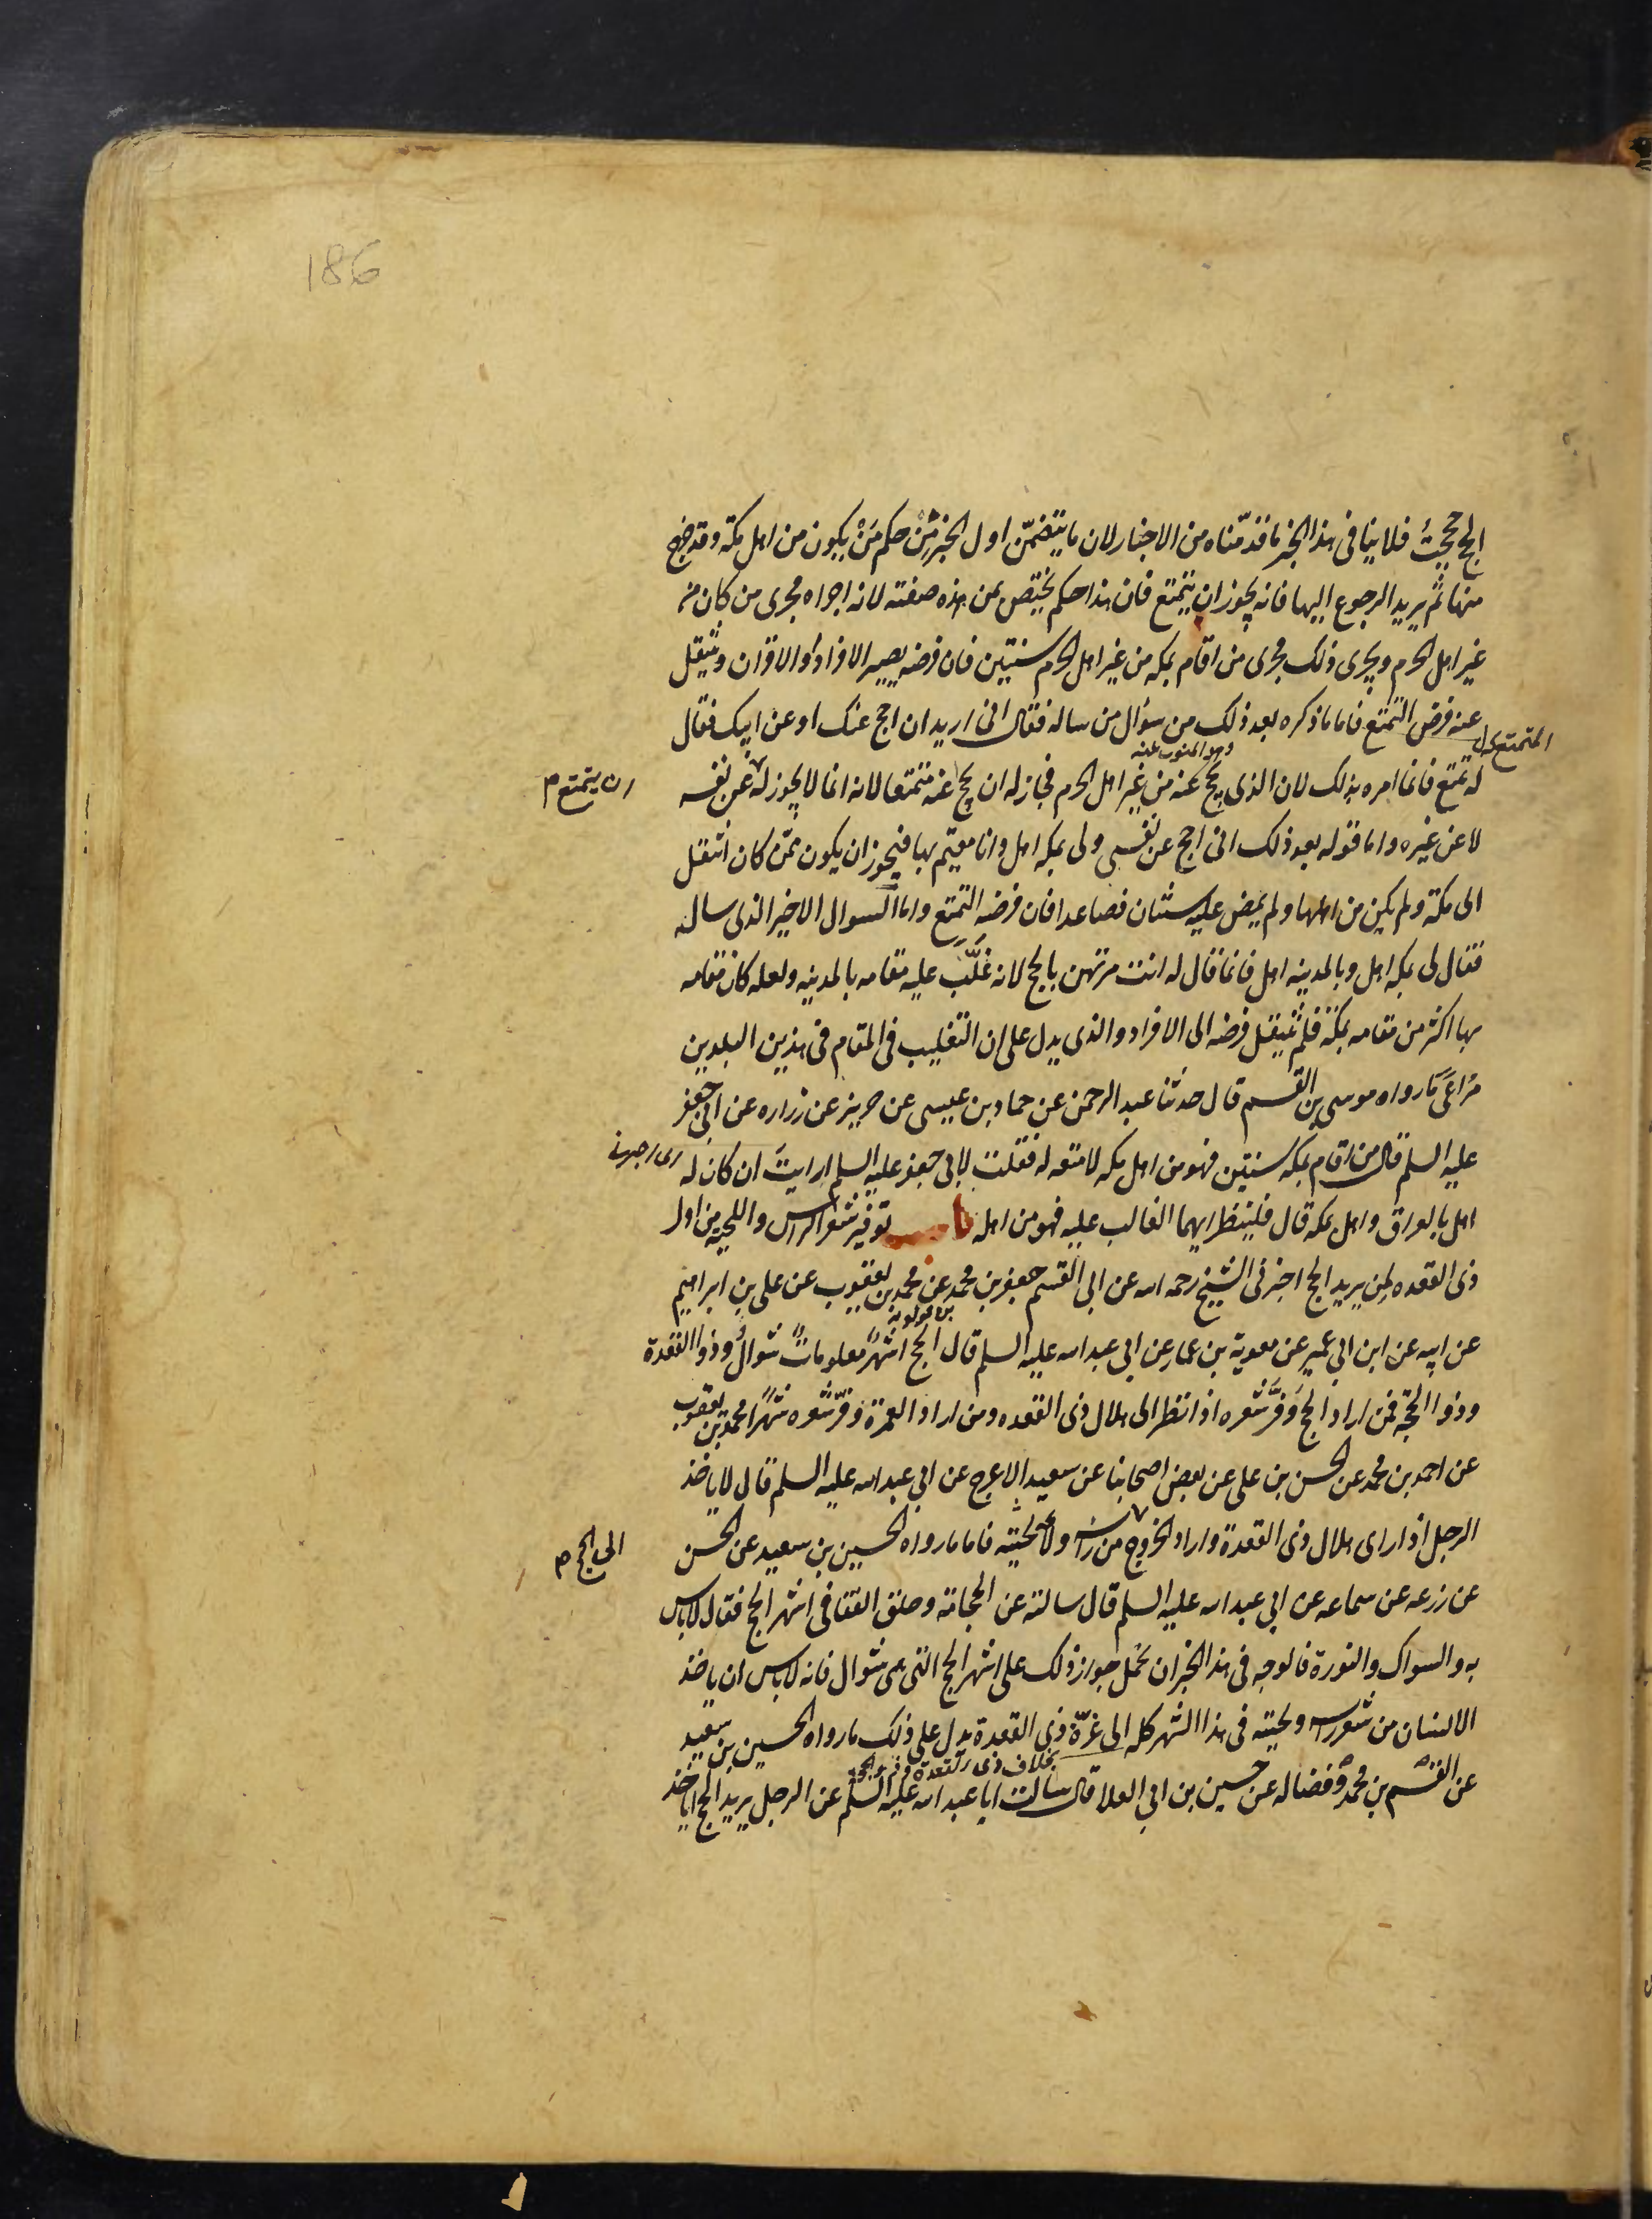 186
الحج حججتُ فلا ينافى هذا الخبر ما قدّمناه من الاخبار لان ما يتضمّن اول الخبر مِنْ حكم مَنْ يكون من اهل مكة وقد خرج
منها ثم يريد الرجوع اليها فانه يجوز ان يتمتع فان هذا حكم يختص بمن هذه صفته لانه اجراه مجرى من كان من
غير اهل الحرم ويجرى ذلك مجرى من اقام بمكه من غير اهل الحرم سنتين فان فرضه يصير الافراد او الاقران وينتقل
عنه فرض التمتع فاما ما ذكره بعد ذلك من سؤال من ساله فقال انى اريد ان احج عنك او عن ابيك فقال
المتمتع
وهو المنوب عنه
له تمتع فانما امره بذلك لان الذى يحج عنه من غير اهل الحرم فجاز له ان يحج عنه متمتعا لانه انما لا يجوز له عن نفسه
ان يتمتع م
لا عن غيره واما قوله بعد ذلك انى احج عن نفسى ولى بمكه اهل وانا مقيم بها فيجوز ان يكون ممّن كان انتقل
الى مكة ولم يكن من اهلها ولم يمض عليه سنتان فصاعدا فان فرضه التمتع واما السوال الاخير الذى ساله
فقال لى بمكه اهل وبالمدينه اهل فانما قال له انت مرتهن بالحج لانه غَلَّبَ عليه مقامه بالمدينه ولعله كان مقامه
بها اكثر من مقامه بمكة فلم ينتقل فرضه الى الافراد والذى يدل على ان التغليب فى المقام فى هذين البلدين
مُراعَى مَا رواه موسى بن القسم قال حدثنا عبد الرحمن عن حماد بن عيسى عن حريز عن زراره عن ابى جعفر
عليه السلم قال من اقام بمكه سنتين فهو من اهل مكه لا متعه له فقلت لابى جعفر عليه السلم ارايتَ ان كان له
اهل بالعراق واهل بمكه قال فلينظر ايهما الغالب عليه فهو من اهله باب توفير شعر الراس واللحيه من اول
ذى القعده لمن يريد الحج اخبرنى الشيخ رحمه الله عن ابى القسم جعفر بن محمد عن محمد بن يعقوب عن على بن ابراهيم
بن قولويه
عن ابيه عن ابن ابى عمير عن معوية بن عمار عن ابى عبد الله عليه السلم قال الحج اشهرٌ معلوماتٌ شوالٌ وذو القعدة
وذو الحجة فمن اراد الحج وَفَّرَ شعره اذا نظر الى هلال ذى القعده ومن اراد العمرة وفّر شعره شهرًا محمد بن يعقوب
عن احمد بن محمد عن الحسن بن على عن بعض اصحابنا عن سعيد الاعرج عن ابى عبد الله عليه السلم قال لا ياخذ
الرجل اذا راى هلال ذى القعدة واراد الخروج من راسه ولا لحيته فاما ما رواه الحسين بن سعيد عن الحسن
الى الحج م
عن زرعه عن سماعه عن ابى عبد الله عليه السلم قال سالته عن الحجامة وحلق القفا فى اشهر الحج فقال لا باس
به والسواك والنورة فالوجه فى هذا الخبر ان نحمل جواز ذلك على اشهر الحج التى هى شوال فانه لا باس ان ياخذ
الانسان من شعر راسه ولحيته فى هذا الشهر كله الى غرّة ذى القعدة يدل على ذلك ما رواه الحسين بن سعيد
بخلاف ذى القعدة وذى الحجة
عن القسم بن محمد وفضاله عن حسين بن ابى العلا قال سالت ابا عبد الله عليه السلم عن الرجل يريد الحج اياخذ